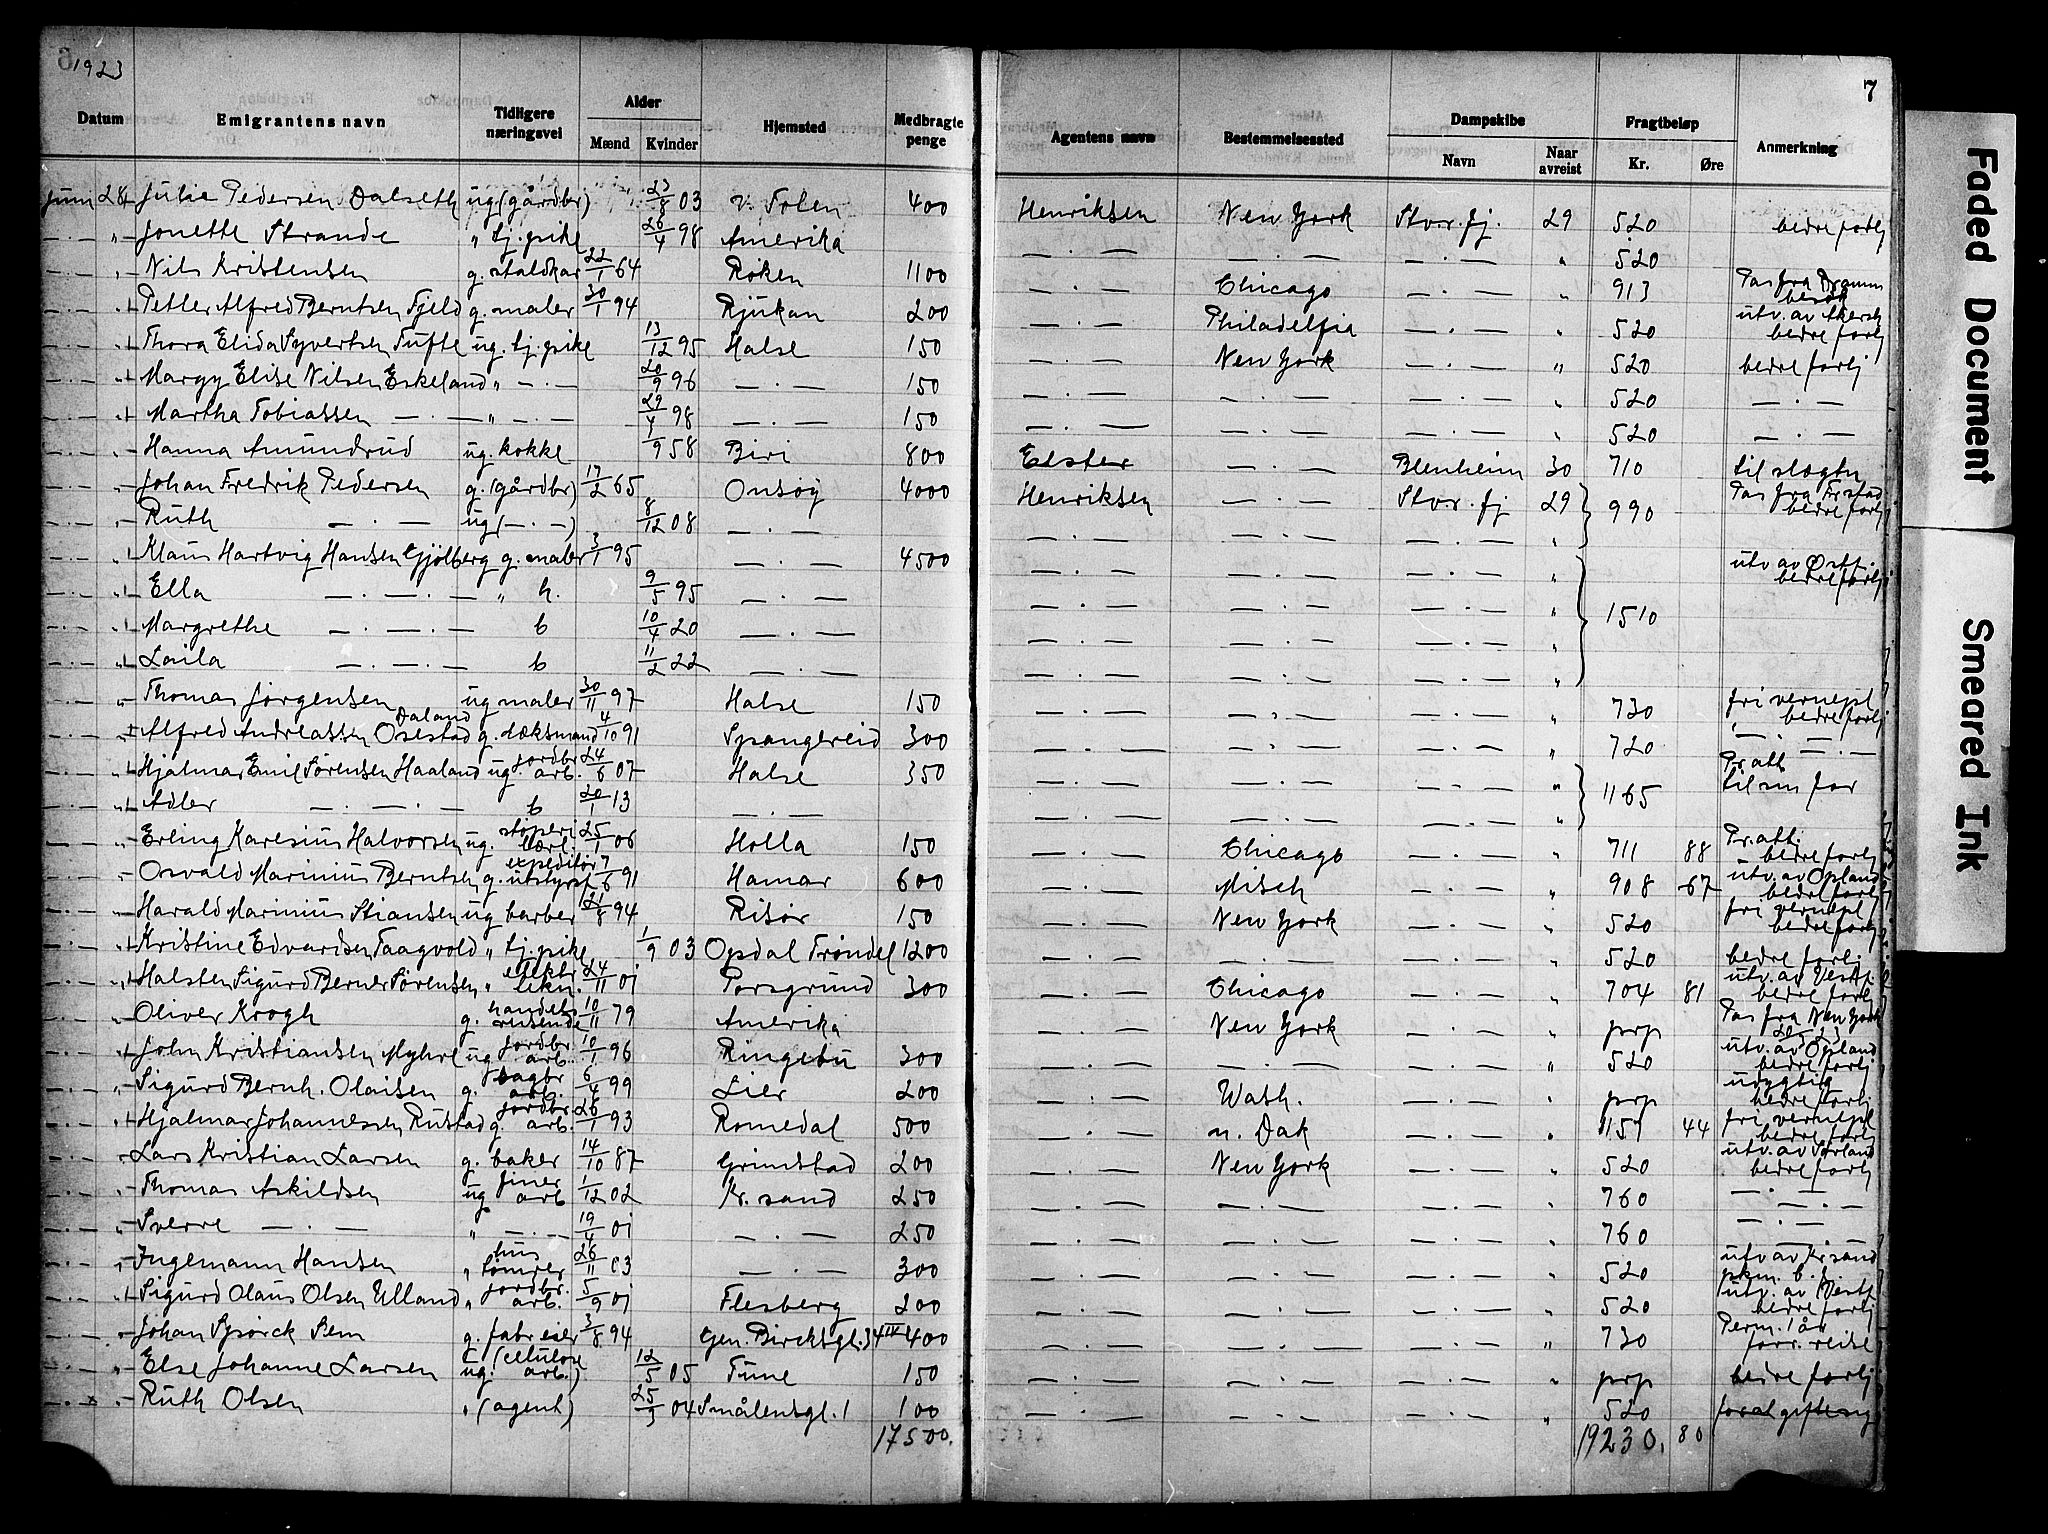 6 1923
7
Datum Emigrantens navn Tidligere næringsvei Alder Mænd Kvinder Hjemsted Medbragte penge Agentens navn Bestemmelsessted Dampskibe Navn Naar avreist Fragtbeløp Kr. Øre Anmerkning
Juni 28 Julie Pedersen Dalseth ug (gårdbr) 23/8 03 v. Toten 400 Henriksen New York Stvr. fj. 29 520 bedre forlj
— · — " Jonette Strande " tj. pike 26/4 98 Amerika — · — — · — — · — " 520
— · — " Nils Kristensen g. staldkar 22/1 64 Røken 1100 — · — Chicago — · — " 913 Pas fra Dramm besøk
— · — " Petter Alfred Berntsen Fjeld g. maler 30/1 94 Rjukan 200 — · — Philadelfia — · — " 520 utv. av Akersh bedre forlj
— · — " Thora Elida Syvertsen Tufte ug. tj. pike 13/12 95 Halse 150 — · — New York — · — " 520 bedre forlj
— · — " Margy Elise Nilsen Eskeland " — · — 20/9 96 — · — 150 — · — — · — — · — " 520 — · —
— · — " Martha Tobiassen — · — " — · — 29/4 98 — · — 150 — · — — · — — · — " 520 — · —
— · — " Hanna Amundrud ug. kokke 1/9 58 Biri 800 Elster — · — Blenheim 30 710 til slægtn
— · — " Johan Fredrik Pedersen g. (gårdbr) 17/2 65 Onsøy 4000 Henriksen — · — Stvr. fj 29 990 Pas fra Frstad bedre forlj
— · — " Ruth — · — ug (— · —) 8/12 08 — · — — · — — · — — · — "
— · — " Klaus Hartvig Hansen Gjølberg g. maler 3/1 95 — · — 4500 — · — — · — — · — " 1510 utv av Østf. bedre forlj
— · — " Ella — · — · — " h. 9/5 95 — · — — · — — · — — · — "
— · — " Margrethe — · — · — b 10/4 20 — · — — · — — · — — · — "
— · — " Laila — · — · — b 11/2 22 — · — — · — — · — — · — "
— · — " Thomas Jørgensen ug maler 30/11 97 Halse 150 — · — — · — — · — " 730 fri vernepl bedre forlj
— · — " Alfred Andreassen Osestad Daland g. dæksmand 4/10 91 Spangereid 300 — · — — · — — · — " 720 — · — · —
— · — " Hjalmar Emil Sørensen Haaland ug. jordbr arb. 24/6 07 Halse 350 — · — — · — — · — " 1165 Pr. att til sin far
— · — " Adler — · — · — b 20/1 13 — · — — · — — · — — · — "
— · — " Erling Karesius Halvorsen ug. støperi lærl. 25/1 06 Holla 150 — · — Chicago — · — " 711 88 Pr. att. bedre forlj
— · — " Osvald Marinius Berntsen g. expeditør utstyrsf 7/6 91 Hamar 600 — · — Misch — · — " 908 67 utv. av Opland bedre forlj
— · — " Harald Marinius Stiansen ug barber 21/8 94 Risør 150 — · — New York — · — " 520 fri vernepl bedre forlj
— · — " Kristine Edvardsen Taagvold " tj. pike 1/9 03 Opdal Trøndel 1200 — · — — · — — · — " 520 bedre forlj
— · — " Halsten Sigurd Berner Sørensen " elektr tekn. 24/11 01 Porsgrund 300 — · — Chicago — · — " 704 81 utv. av Vestf. bedre forlj
— · — " Oliver Krogh g. handels reisende 10/11 79 Amerika — · — New York — · — " prp Pas fra New York 20/3 23
— · — " John Kristiansen Myhre ug jordbr. arb. 10/1 96 Ringebu 300 — · — — · — — · — " 520 utv. av Opland bedre forlj
— · — " Sigurd Bernh. Olaisen g. sagbr arb. 6/4 99 Lier 200 — · — Wash. — · — " prp udygtig bedre forlj
— · — " Hjalmar Johannessen Rustad g. jordbr. arb. 26/1 93 Romedal 500 — · — n. Dak — · — " 1151 44 fri vernepl bedre forlj
— · — " Lars Kristian Larsen g. baker 14/10 87 Grimstad 200 — · — New York — · — " 520 utv. av Sørland bedre forlj
— · — " Thomas Askildsen ug finer arb 1/12 02 Kr. sand 250 — · — — · — — · — " 760 — · — · —
— · — " Sverre — · — " — · — 19/4 01 — · — 250 — · — — · — — · — " 760 — · — · —
— · — " Ingemann Hansen " hus tømrer 26/11 03 — · — 300 — · — — · — — · — " 520 utv av Kr.sand pkm. b. f.
— · — " Sigurd Olaus Olsen Ulland " jordbr. arb. 5/9 01 Flesberg 200 — · — — · — — · — " 520 utv. av Vestf bedre forlj
— · — " Johan Spørck Sem g. fabr eier 3/8 94 Gen. Bircksgt. 34 IV 400 — · — — · — — · — " 730 Perm. 1 år forr. reise
— · — " Else Johanne Larsen ug. (cellulose arb.) 12/5 05 Tune 150 — · — — · — — · — " prp bedre forlj
— · — " Ruth Olsen " (agent) 25/3 04 Smålensgt. 1 100 — · — — · — — · — " 520 for at giftesig
17500. 19230. 80
Faded Document
Smeared Ink